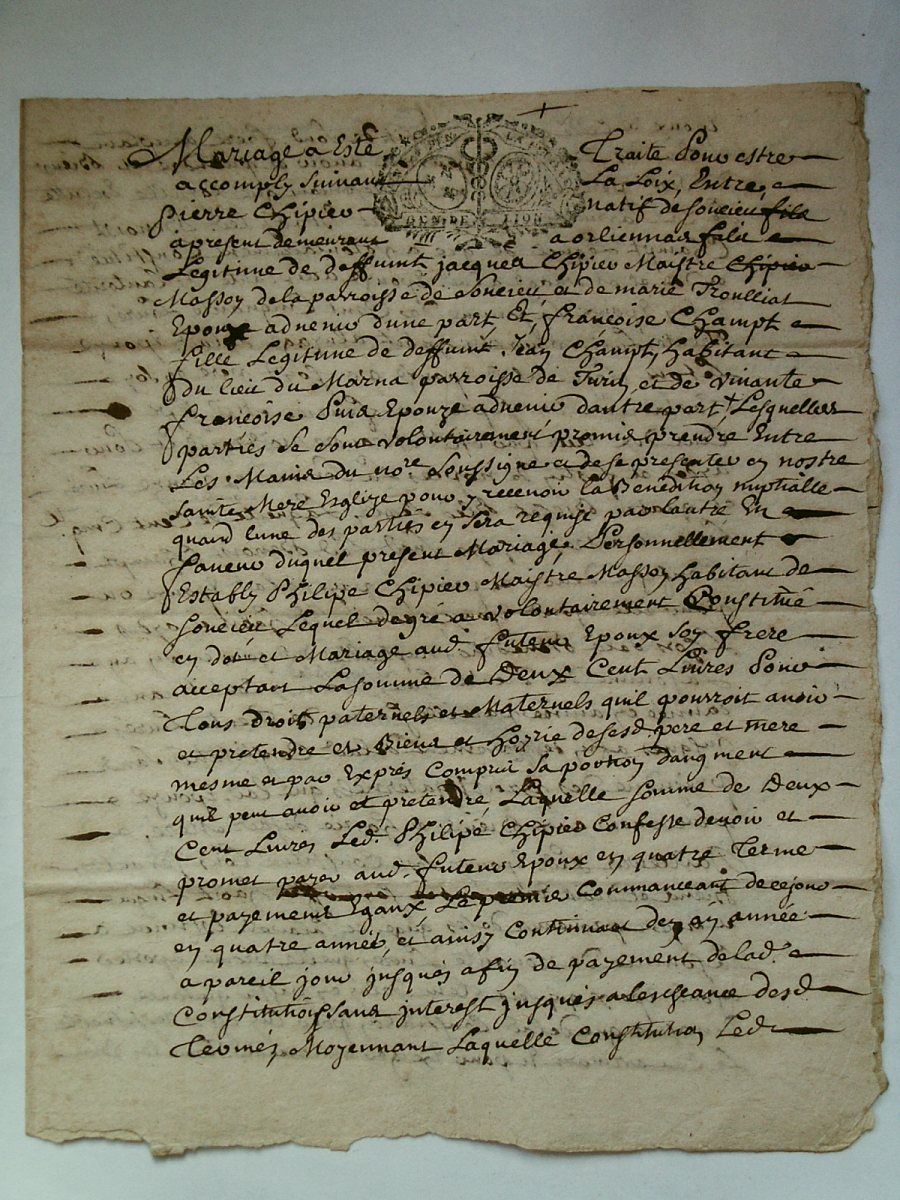 Mariage a Esté Traité Pour estre
accomply suivant La Loix, Entre,
pierre Chipier natif de soucieu fils
apresent demeurant a orliennas fils
Legitime de deffuint jacques Chipier Maistre Chipier
Massoy de la parroisse de soucieu, et de marie Troulliat
Epouze advenir dune part, Et, francoise Champt
fille Legitime de deffuint jean Champt, habitant
du lieu du Marna parroisse de Turin et de vivante
francoise Epouze advenir dautre part, Lesquelles
parties se sont volontairement promis prendre Entre
Les Mains du nore soussigne et de se presenter en nostre
sainte Mere Esglize pour y recevoir la Benediction nuptialle
quand lune des parties en sera requise par lautre En
faveur duquel present Mariage, Personnellement
Estably Philipe Chipier Maistre Massoy habitant de
soucieu Lequel de gré a volontairement Constitué
en dot et Mariage aud. futeur Epoux soy frere
acceptant La somme de Deux Cent Livres Pour
Tous droits paternels et Maternels quil pourroit avoir
et pretendre et Biens et hoyrie de sesd. pere et mere
mesme et par Exprés Compris sa portion daugment
quil peut avoir et pretendre, Laquelle somme de Deux
Cent Livres Led. Philipe Chipier Confesse devoir et
promet payer aud. futeur Epoux en quatre Terme
et payements Egaux, Le premie Commanceant de ce jour
en quatre année, et ainsy Continuant dez en année
a pareil jour jusques a fin de payement de lad.
Constitution sans interest jusques a lescheance desd.
Termes, Moyennant Laquelle Constitution Led.